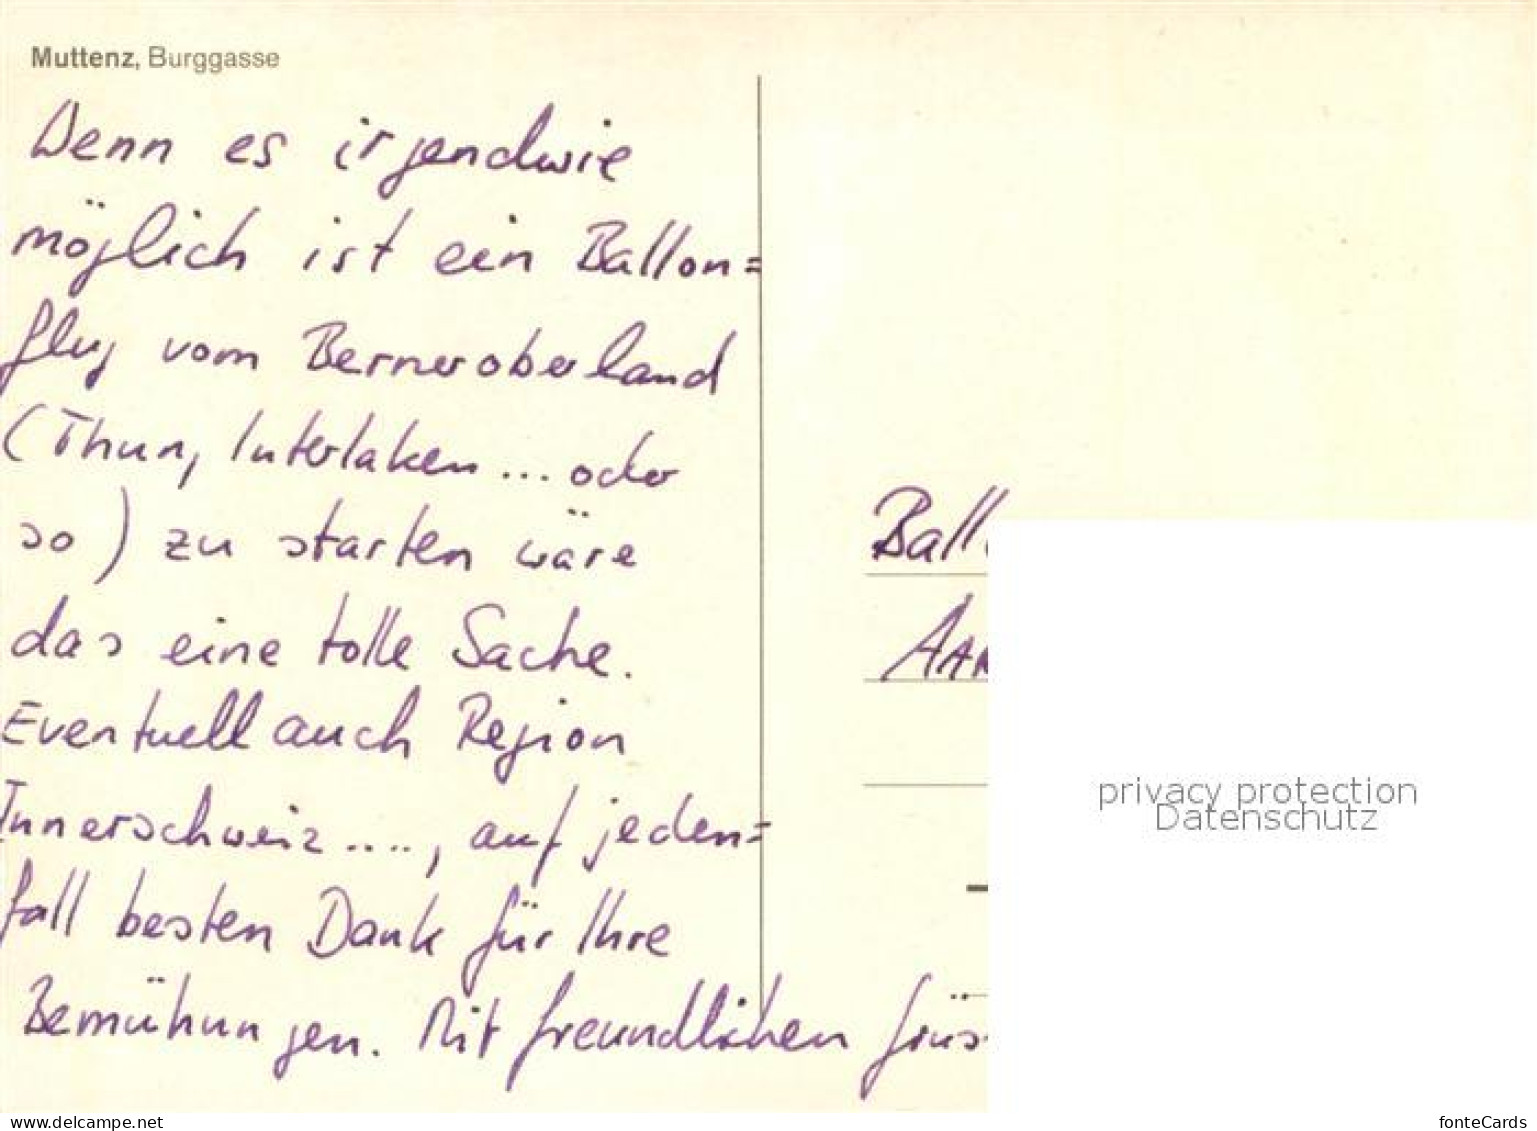 Muttenz, Burggasse
Wenn es irgendwie
möglich ist ein Ballon=
flug vom Berneroberland
(Thun, Interlaken ... oder
so) zu starten wäre
das eine tolle Sache.
Eventuell auch Region
Innerschweiz ...., auf jeden=
fall besten Dank für Ihre
Bemühungen. Mit freundlichen
Ball
AAR
privacy protection
Datenschutz
www.delcampe.net
fonteCards